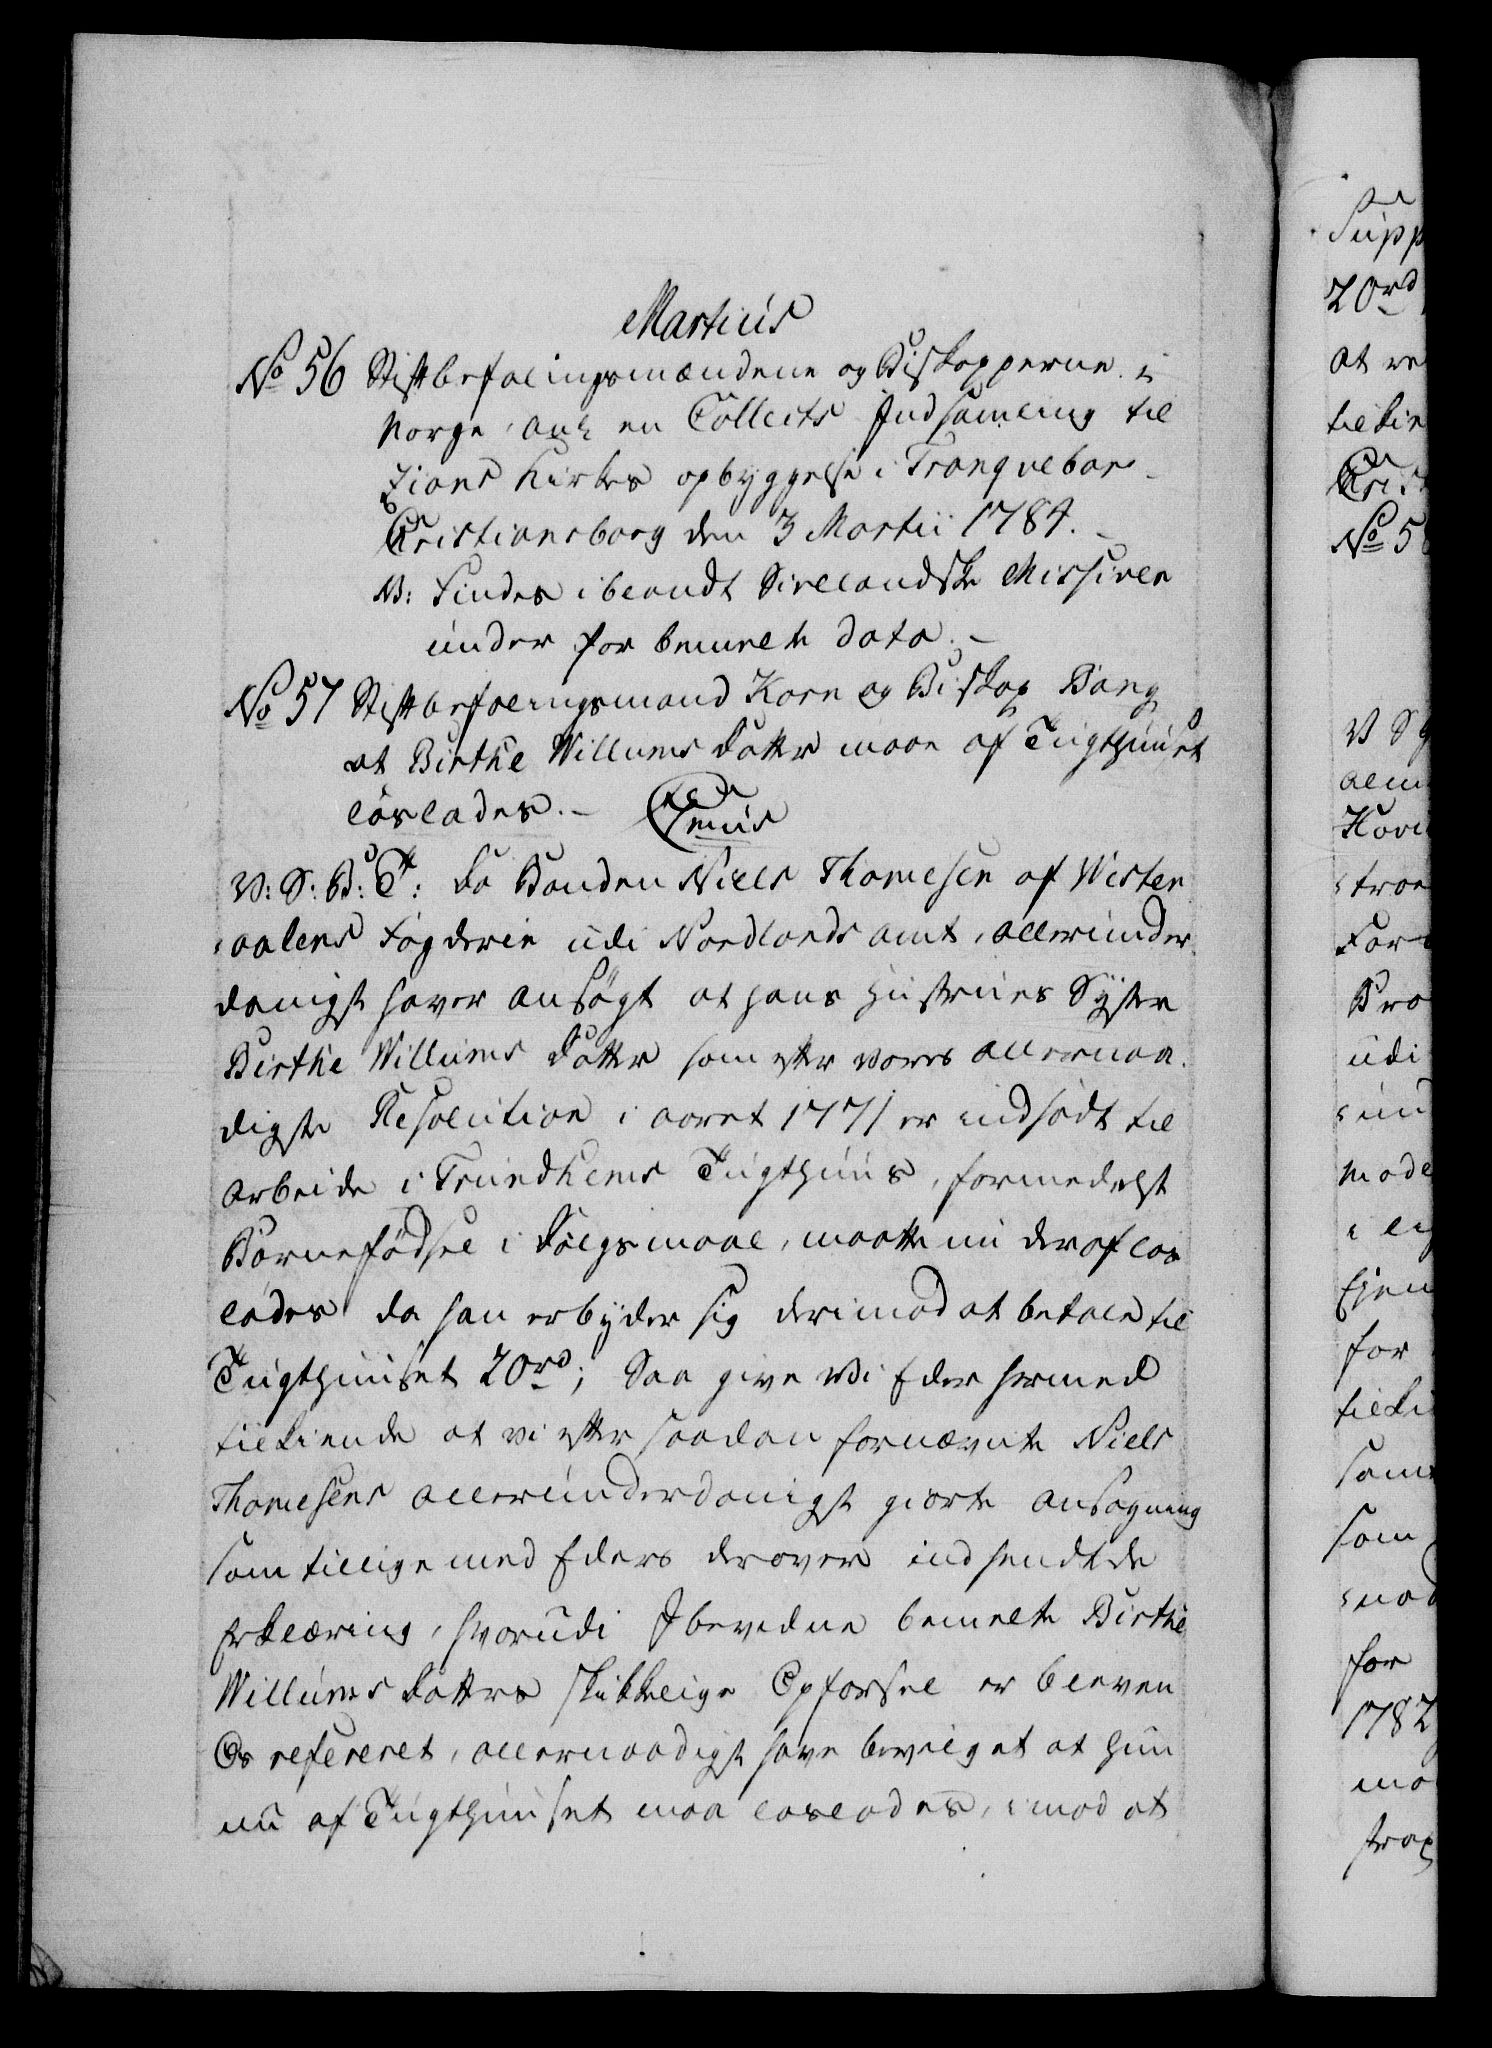 Martius
No 56 Stiftbefalingsmændene og Biskopperne i
Norge, anl: en Collects Indsamling til
Zions Kirkes opbyggelse i Tranquebar.
Christiansborg den 3 Martii 1784.
NB: Findes iblandt Siellandske Missiver
under forbemelte dato.
No 57 Stiftbefalingsmand Horn og Biskop Bang
at Birthe Willums Datter maae af Tugthuuset
løslades. C 7mus
V: S: B: T: Da Bonden Niels Thomesen af Wester
aalens Fogderie udi Nordlands amt, allerunder
danigst haver ansøgt at hans Hustrues Syster
Birthe Willums Datter som efter vores allernaa
digste Resolution i aaret 1771 er indsadt til
Arbeide i Trundhiems Tugthuus, formedelst
Barnefødsel i Dølgsmaal, maatte nu deraf løs
lades, da han erbyder sig derimod at betale til
Tugthuuset 20rd; Saa give Vi Eder hermed
tilkiende at vi efter saadan fornævnte Niels
Thomesens allerunderdanigst giorte Ansøgning
som tillige med Eders derover indsendtde
Erklæring, hvorudi I bevidne bemelte Birthe
Willums Datters skikkelige Opførsel er bleven
Os refereret, allernaadigst have bevilget at hun
nu af Tugthuuset maa løslades, imod at
Supp
20rd
at ve
tilkie
Chri
No 5
V S
alm
Hove
troe
For
Pro
udi
un
mode
i
Ejen
for
tilki
sam
som
nad
for
1782
ma
strax